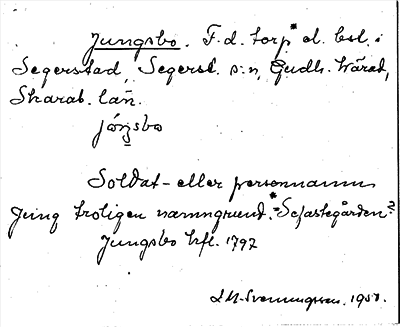 Jungsbo. F.d. torp* el. bsl. i
Segerstad, Segerst. s:n, Gudh. härad,
Skarab. län.
jóŋsbo
Soldat- eller personnamn
Jung troligen namngrund. *Sefastegården?
Jungsbo hfl. 1797
L M. Svenungsson. 1950.